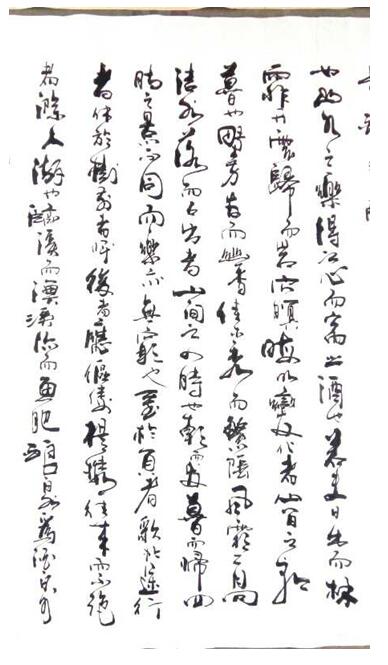 也山水之樂得之心而寓之酒也若夫日出而林
霏開雲歸而岩穴暝晦明變化者山間之朝
暮也野芳發而幽香佳木秀而繁陰風霜高
潔水落而石出者山間之四時也朝而往暮而歸四
時之景不同而樂亦無窮也至於負者歌於途行
者休於樹前者呼後者應傴僂提攜往來而不絕
者滁人遊也臨溪而漁溪深而魚肥釀泉為酒泉